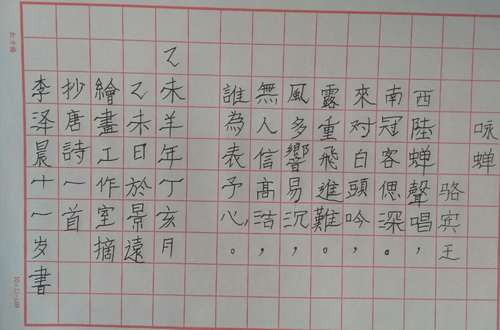 咏蝉
骆宾王
西陸蝉聲唱，
南冠客偲深。
來对白頭吟，
露重飛進難。
風多響易沉，
無人信高洁，
誰為表予心。
乙未羊年丁亥月
乙未日於景遠
繪畫工作室摘
抄唐詩一首
李泽晨十一岁書